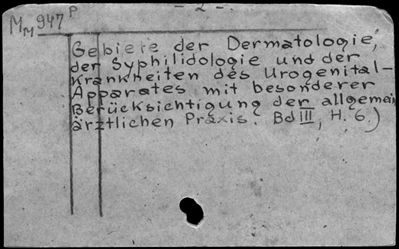 - 2 -.
MM 947 P
Gebiete der Dermatologie,
der Syphilidologie und der
Krankheiten des Urogenital-
Apparates mit besonderer
Berücksichtigung der allgemein
ärztlichen Praxis. Bd III, H. 6.)